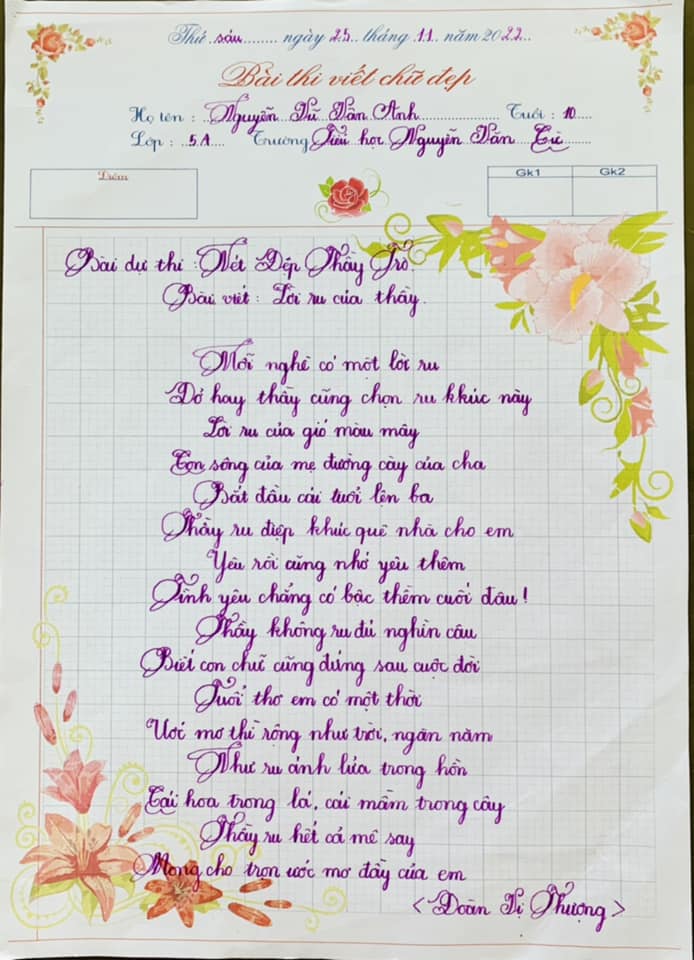 Thứ sáu ngày 25 tháng 11 năm 2022
Bài thi viết chữ đẹp
Họ tên : Nguyễn Vũ Vân Anh Tuổi : 10
Lớp : 5A Trường Tiểu học Nguyễn Văn Cừ
Điểm Gk1 Gk2
Bài dự thi : Nét Đẹp Thầy Trò.
Bài viết : Lời ru của thầy.
Mỗi nghề có một lời ru
Dở hay thầy cũng chọn ru khúc này
Lời ru của gió màu mây
Con sông của mẹ đường cày của cha
Bắt đầu cái tuổi lên ba
Thầy ru điệp khúc quê nhà cho em
Yêu rồi cũng nhớ yêu thêm
Tình yêu chẳng có bậc thềm cuối đâu !
Thầy không ru đủ nghìn câu
Biết con chữ cũng đứng sau cuộc đời
Tuổi thơ em có một thời
Ước mơ thì rộng như trời, ngàn năm
Như ru ánh lửa trong hồn
Cái hoa trong lá, cái mầm trong cây
Thầy ru hết cả mê say
Mong cho trọn ước mơ đầy của em
< Đoàn Vị Thượng >